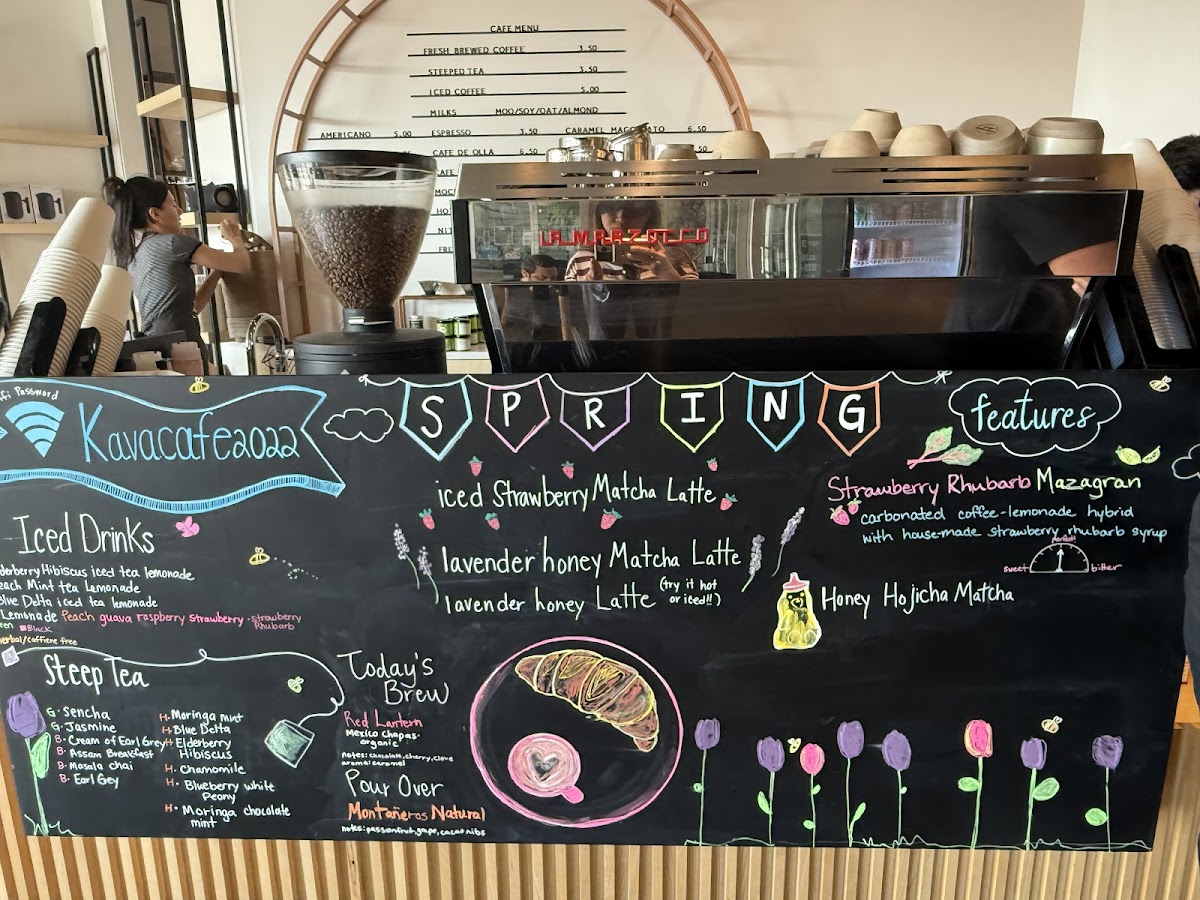 CAFE MENU
FRESH BREWED COFFEE 3.50
STEEPED TEA 3.50
ICED COFFEE 5.00
MILKS MOO/SOY/OAT/ALMOND
AMERICANO 5.00 ESPRESSO 3.50 CARAMEL 6.50
CAFE DE OLLA 6.50
LA MARZOCCO
Password
Kavacafe2022
SPRING
features
iced Strawberry Matcha Latte
lavender honey Matcha Latte
lavender honey Latte (try it hot
or iced!!)
Strawberry Rhubarb Mazagran
carbonated coffee-lemonade hybrid
with house-made strawberry rhubarb syrup
perfect!
sweet bitter
Honey Hojicha Matcha
Iced Drinks
Hibiscus iced tea lemonade
Mint tea Lemonade
Delta iced tea lemonade
Lemonade Peach guava raspberry strawberry · strawberry
Rhubarb
Black
/caffiene free
Steep Tea
G· Sencha
G· Jasmine
B· Cream of Earl Grey
B· Assam Breakfast
B· Masala chai
B· Earl Gey
H. Moringa mint
H. Blue Delta
H· Elderberry
Hibiscus
H. Chamomile
H· Blueberry white
Peony
H· Moringa chocolate
mint
Today's
Brew
Red Lantern
Mexico Chapas·
organic
notes: chocolate, cherry, clove
aroma: caramel
Pour Over
Montañeros Natural
notes: passionfruit, gape, cacao nibs